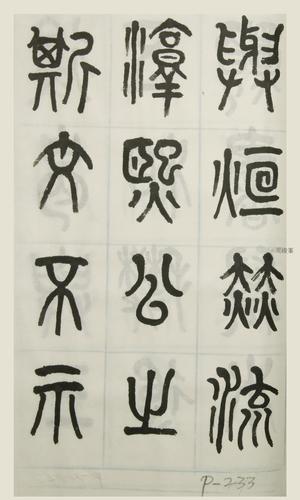 與烜赫流
淳熙公之
斯文不示
P-233